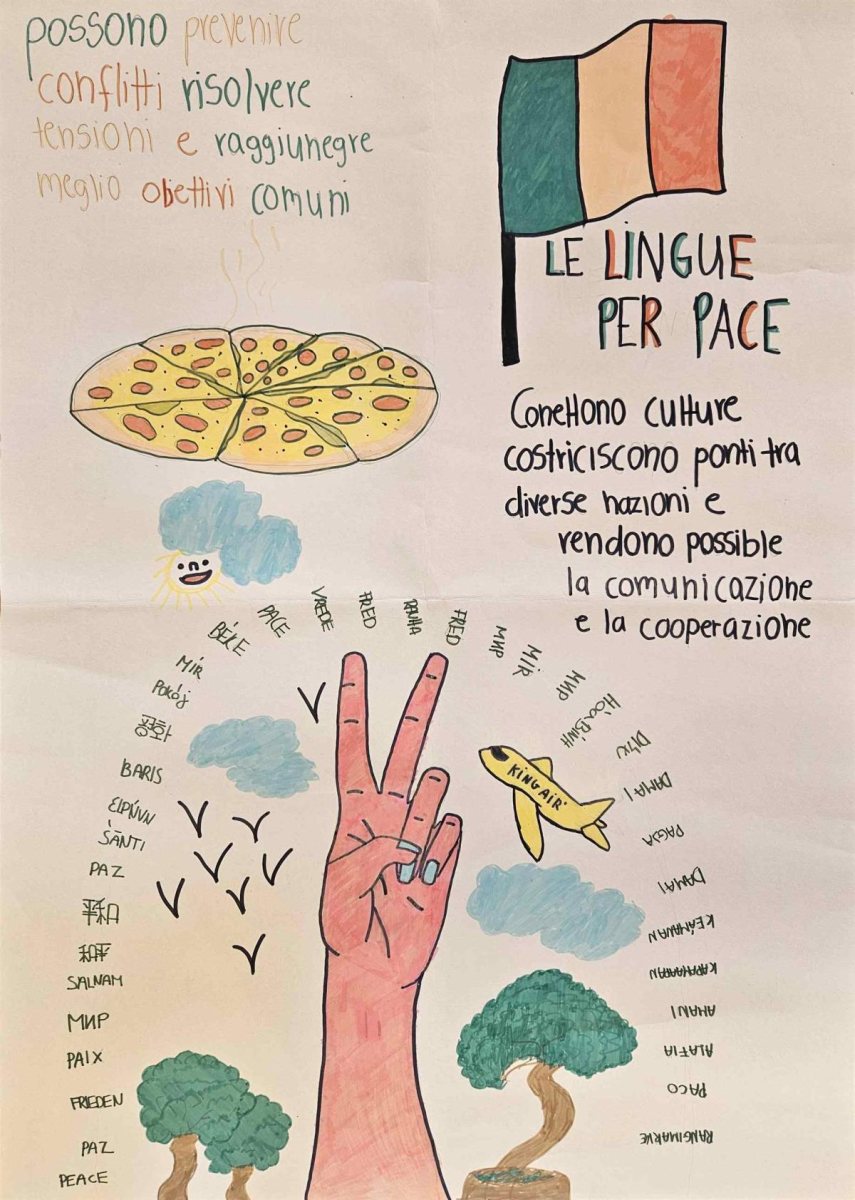 possono prevenire
conflitti risolvere
tensioni e raggiunegre
meglio obettivi comuni
LE LINGUE
PER PACE
Conettono culture
costriciscono ponti tra
diverse nazioni e
rendono possible
la comunicazione
e la cooperazione
PEACE
PAZ
FRIEDEN
PAIX
МИР
SALNAM
和平
平和
PAZ
ŚĀNTI
ΕΙΡήνν
BARIS
평화
POKÓJ
MÍR
BÉKE
PACE
VREDE
FRED
RAUHA
FRED
МИР
MÍR
МИР
HÒA BÌNH
DAMAI
DAMAI
KEAMANAN
KAPAYAPAAN
AMANI
ALAFIA
PACO
RANGIMARVE
KING AIR